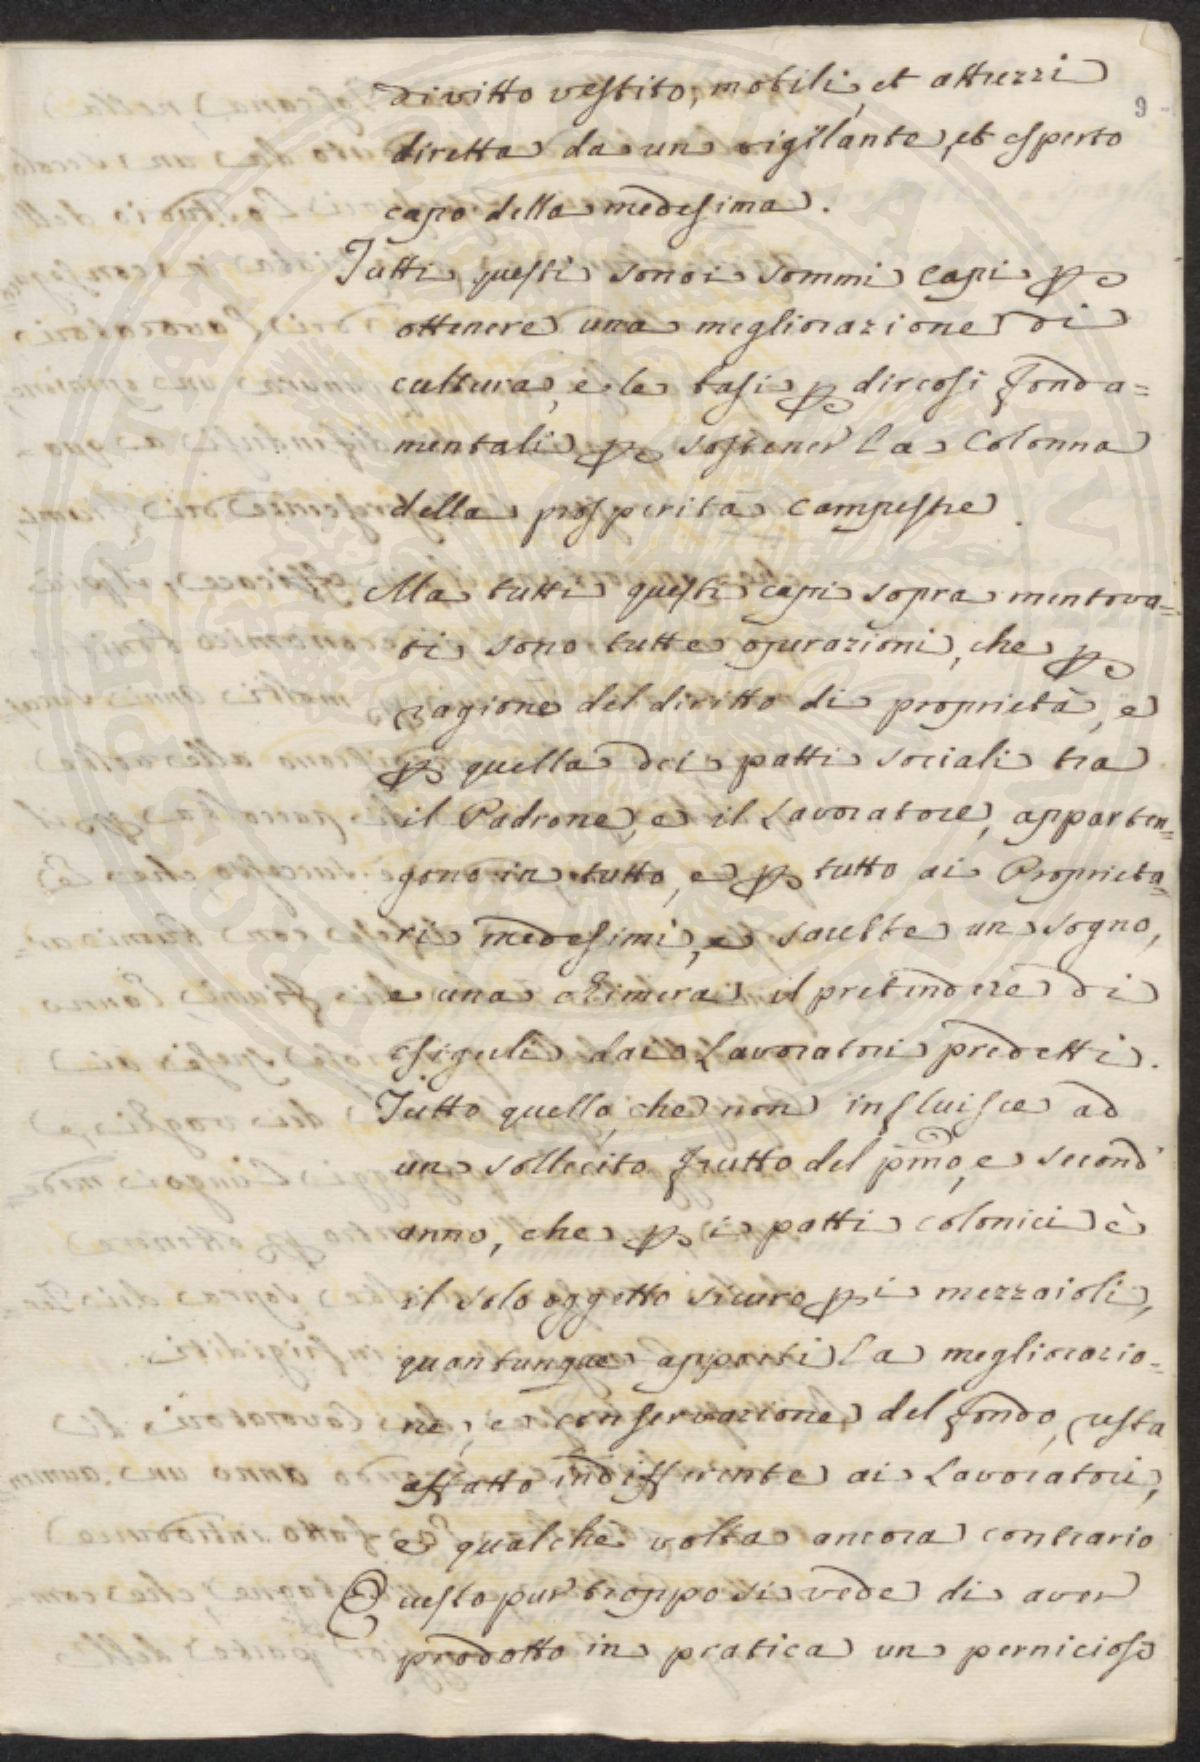 di vitto vestito, mobili, et attrezzi
9
diretta da un vigilante, et esperto
capo della medesima.
Tutti questi sono i sommi capi p
ottenere una megliorazione di
cultura, e le basi p dir cosi fonda=
mentali p sostener la Colonna
della prosperità campestre.
Ma tutti questi capi sopra mentova=
ti sono tutte operazioni, che p
ragione del diritto di proprietà, e
p quella dei patti sociali tra
il Padrone, e il Lavoratore, apparten=
gono in tutto, e p tutto ai Proprieta=
ri medesimi, e sarebbe un sogno,
e una chimera il pretendere di
esigerli dai Lavoratori predetti.
Tutto quello, che non influisce ad
un sollecito frutto del pmo, e second
anno, che p i patti colonici è
il solo oggetto sicuro p i mezzaioli,
quantunque apporti la megliorazio=
ne, e conservazione del fondo, resta
affatto indifferente ai Lavoratori,
e qualche volta ancora contrario
Questo pur troppo si vede di aver
prodotto in pratica un pernicioso